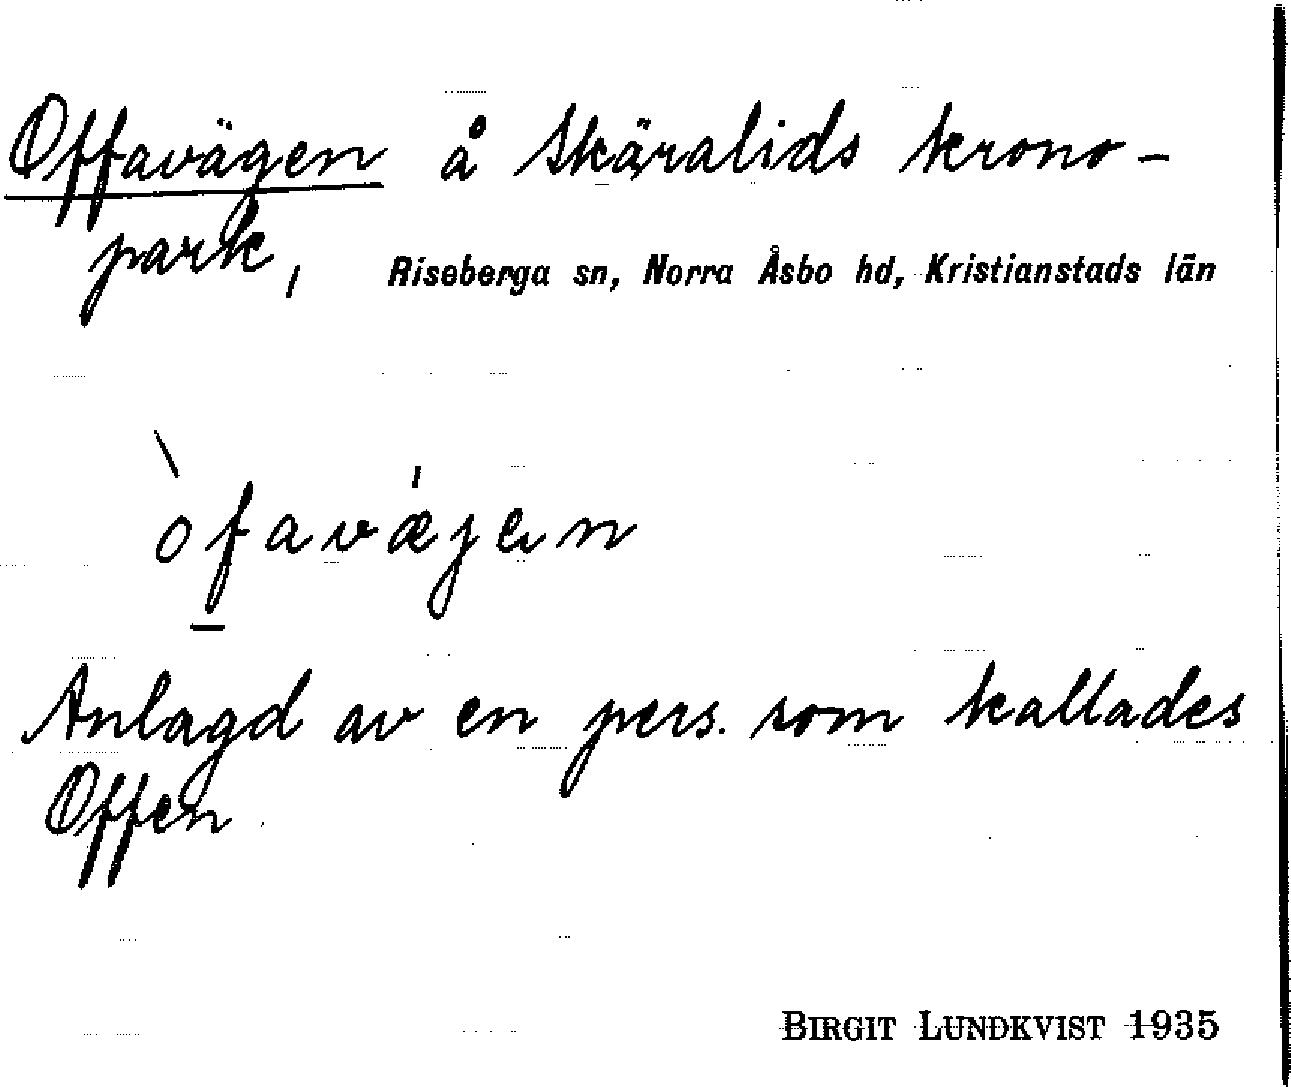 Offavägen å Skäralids krono-
park, Riseberga sn, Norra Åsbo hd, Kristianstads län
òfavǽjen
Anlagd av en pers. som kallades
Offen
BIRGIT LUNDKVIST 1935